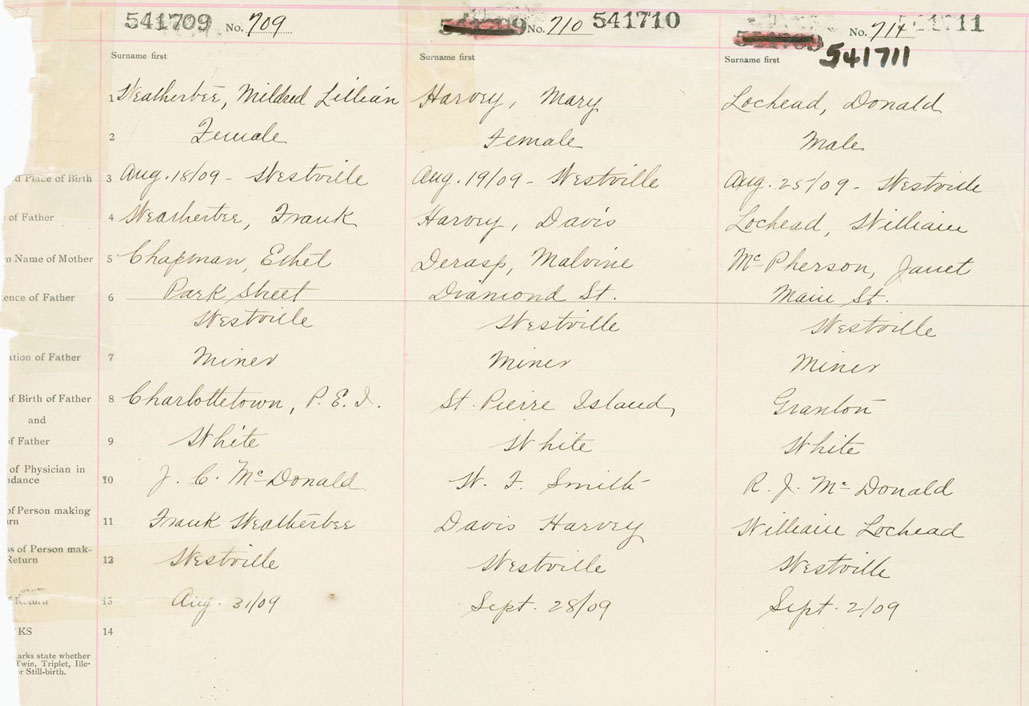 541709 No. 709
No. 710 541710
No. 711
541711
Surname first
Surname first
Surname first
1 Weatherbee, Mildred Lillian
Harvey, Mary
Lochead, Donald
2 Female
Female
Male
Place of Birth 3 Aug. 18/09 - Westville
Aug. 19/09 - Westville
Aug. 25/09 - Westville
of Father 4 Weatherbee, Frank
Harvey, Davis
Lochead, William
Name of Mother 5 Chapman, Ethel
Derasp, Malvine
McPherson, Janet
ence of Father 6 Park Street
Diamond St.
Main St.
Westville
Westville
Westville
ation of Father 7 Miner
Miner
Miner
of Birth of Father 8 Charlottetown, P.E.I.
St. Pierre Island,
Granton
and
of Father 9 White
White
White
of Physician in
ndance 10 J. C. McDonald
W. F. Smith
R. J. McDonald
of Person making
urn 11 Frank Weatherbee
Davis Harvey
William Lochead
ss of Person mak-
Return 12 Westville
Westville
Westville
Return 13 Aug. 31/09
Sept. 28/09
Sept. 2/09
KS 14
arks state whether
Twin, Triplet, Ille-
or Still-birth.